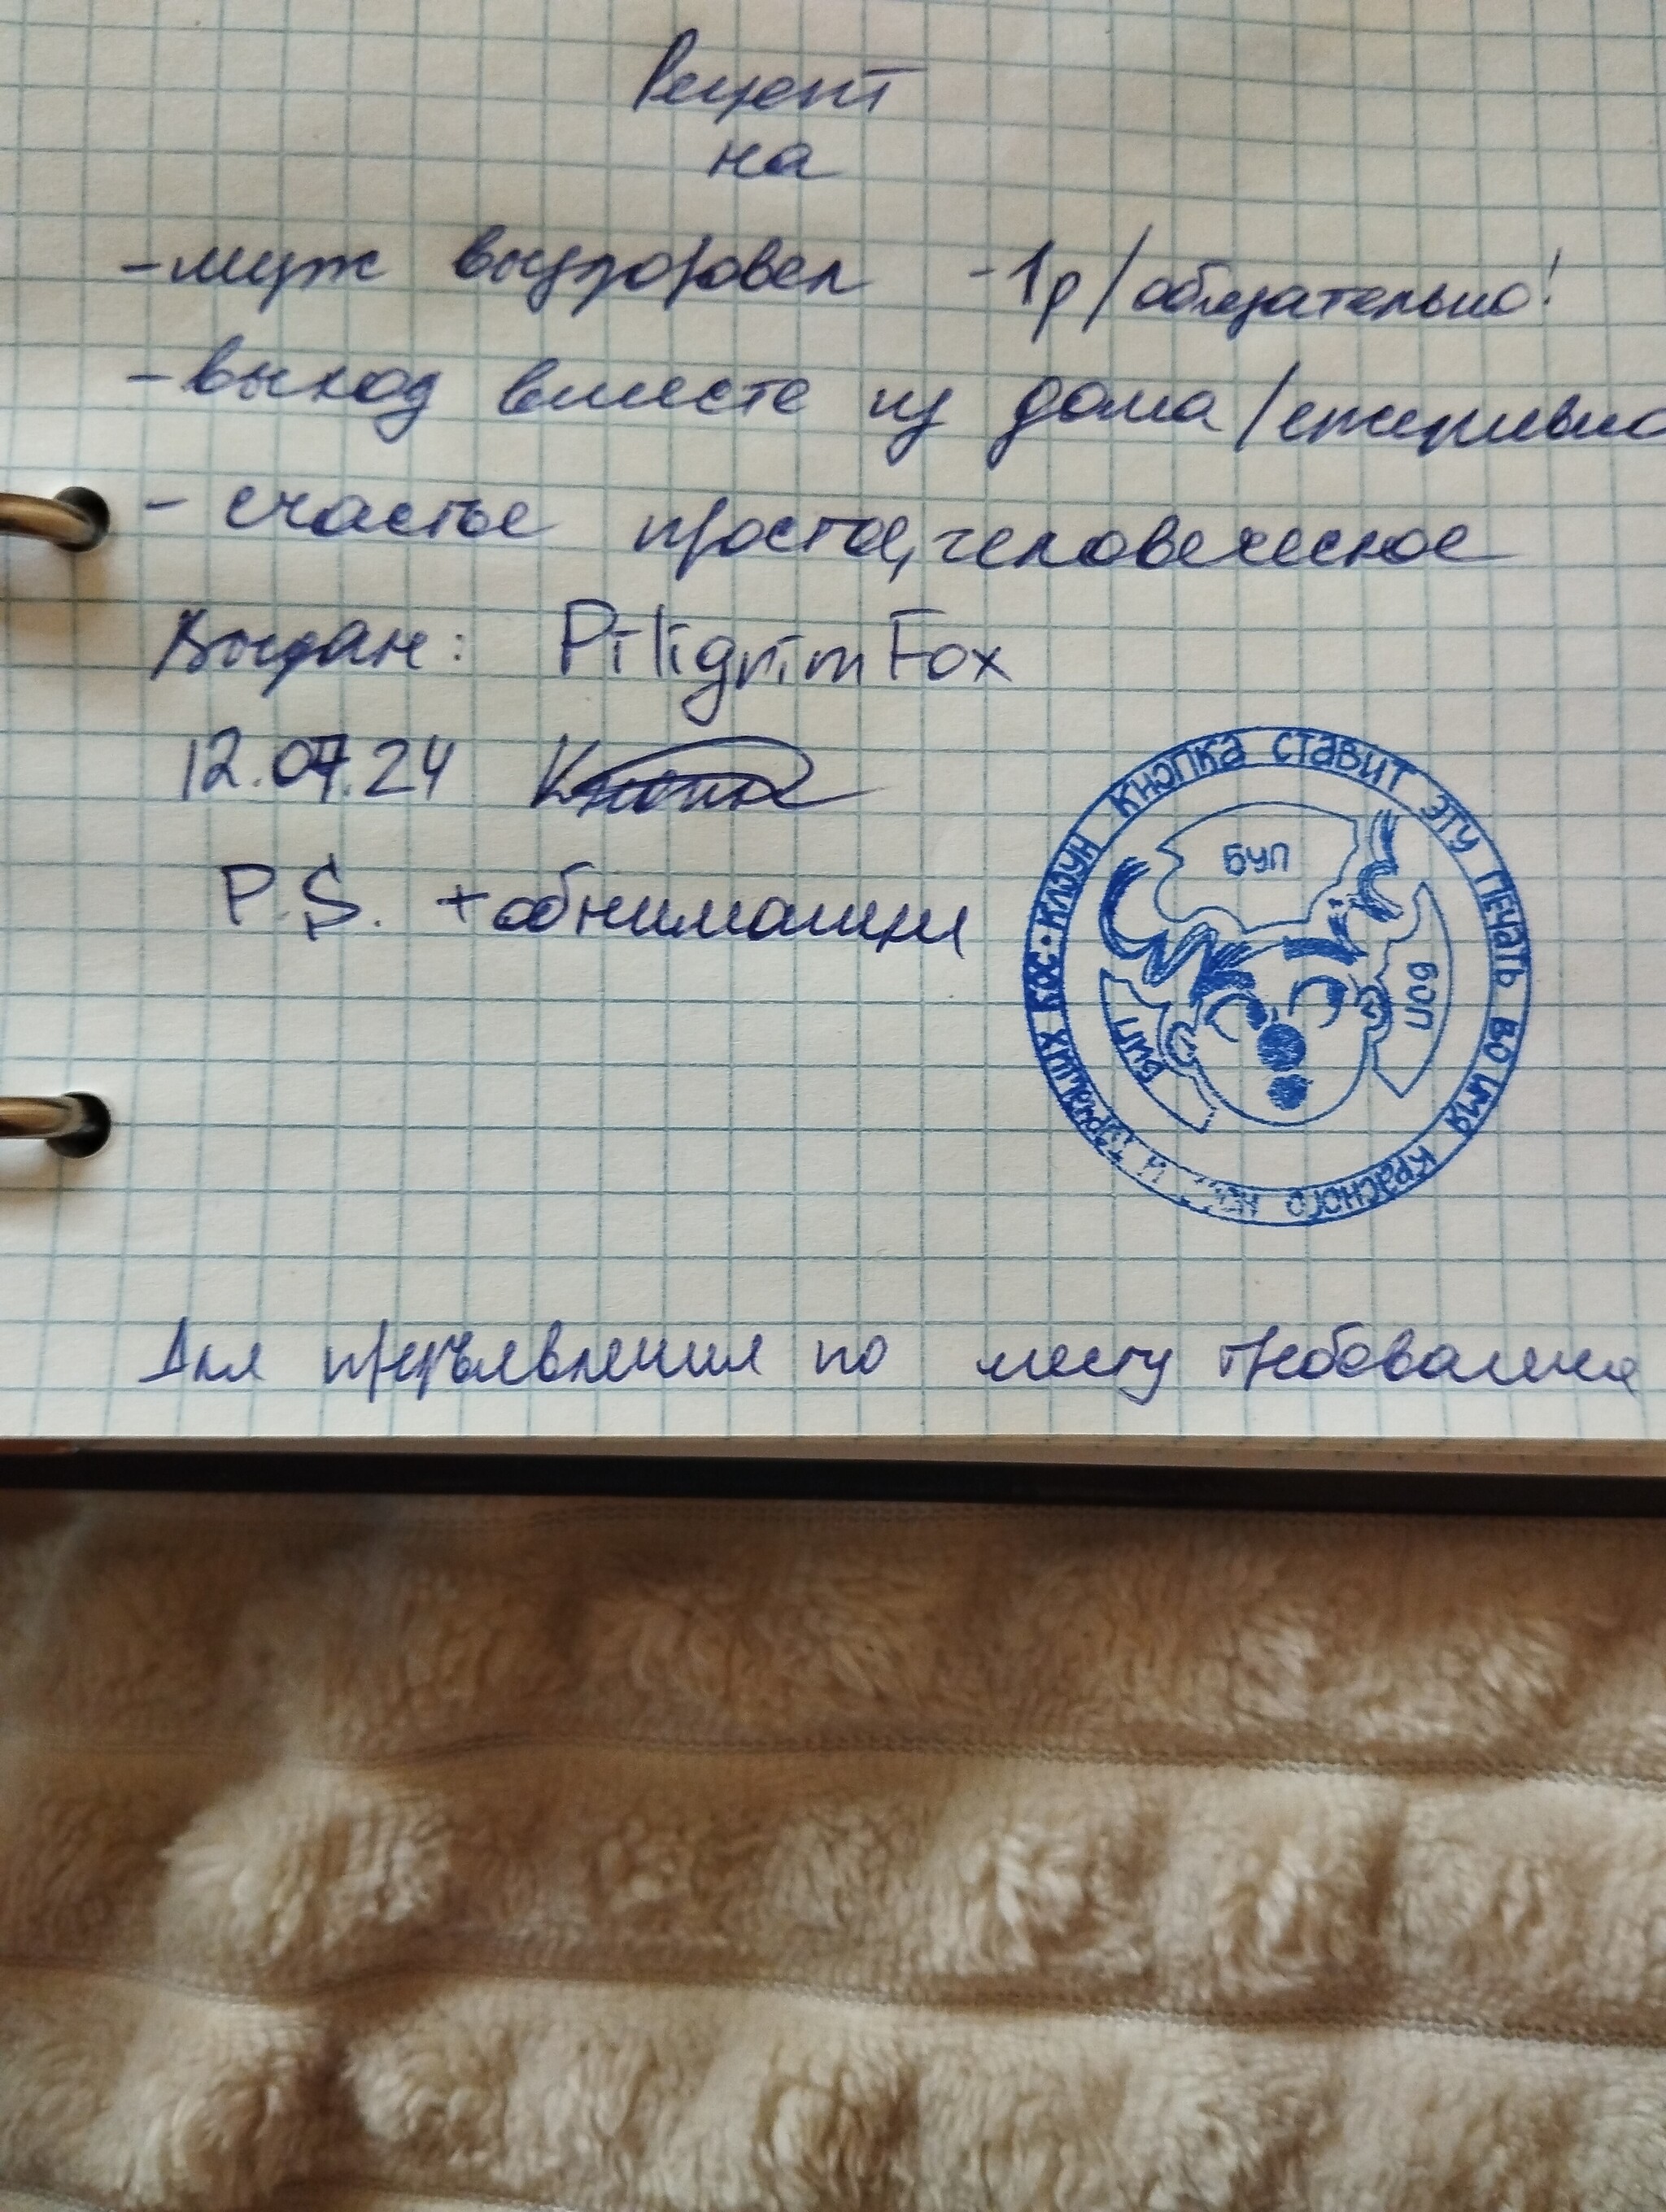 Рецепт
на
- муж выздоровел - 1р/обязательно!
- выход вместе из дома/ежедневно
- счастье простое, человеческое
Выдан: PiligrimFox
12.07.24 Кнопка
P.S. + обнимашки
Для предъявления по месту требования
• Клоун Кнопка ставит эту печать во имя красного и торчащих кос
Бип
Буп
Боп